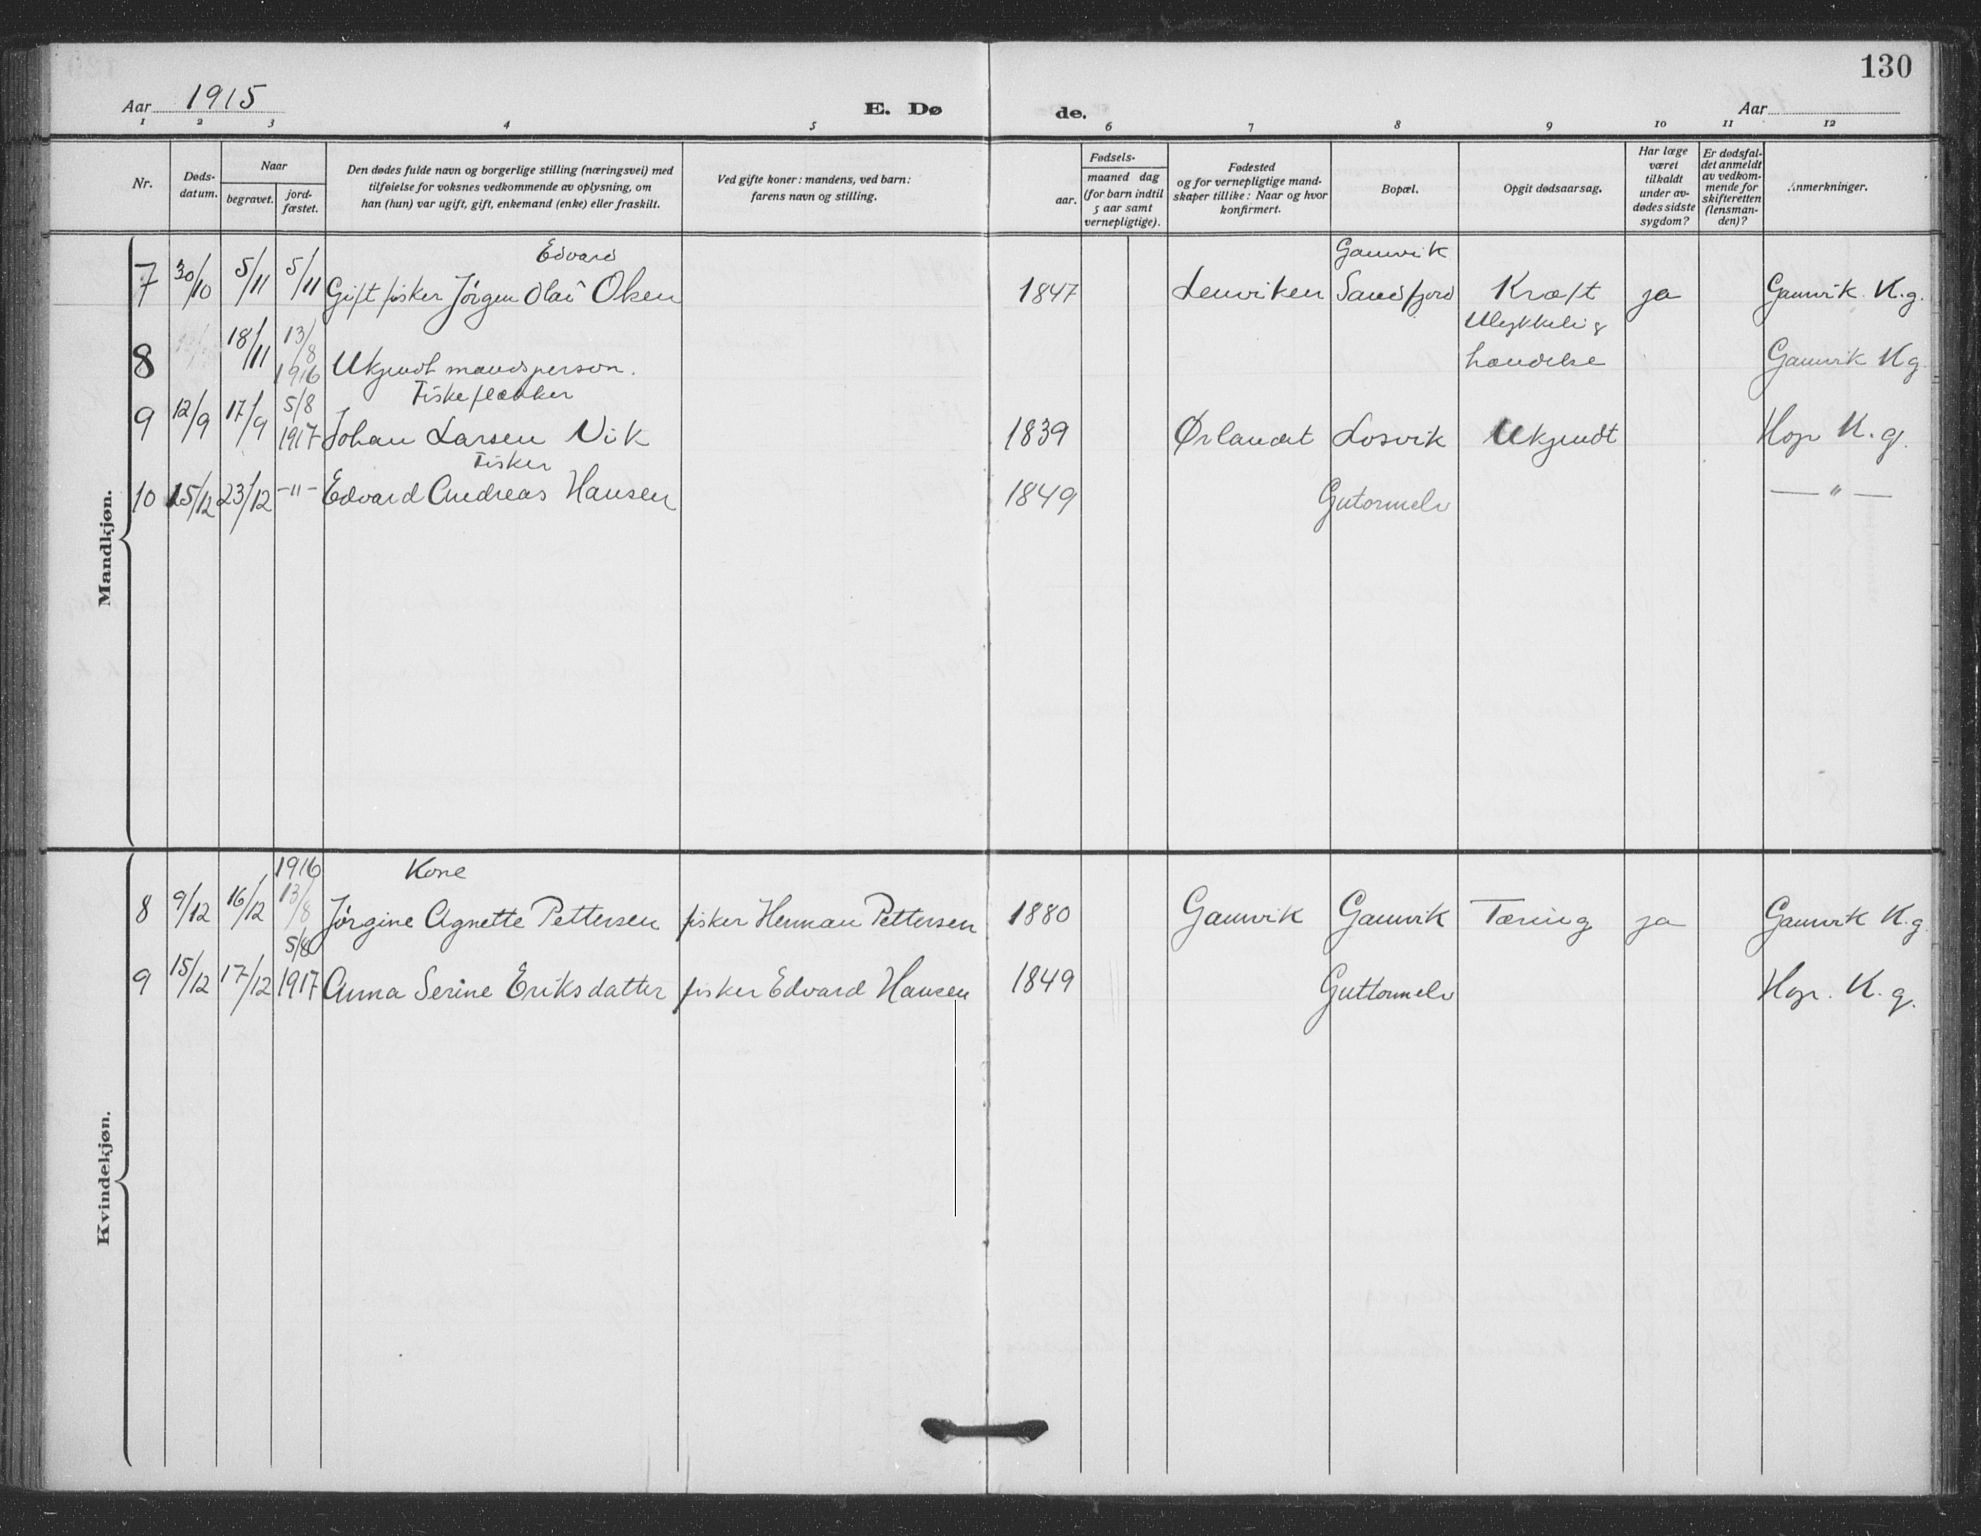 130
Aar 1915
E. Dø
de.
Aar
1 2 3 4 5 6 7 8 9 10 11 12
Nr.
Døds-
datum.
Naar
begravet.
jord-
fæstet.
Den dødes fulde navn og borgerlige stilling (næringsvei) med
tilføielse for voksnes vedkommende av oplysning, om
han (hun) var ugift, gift, enkemand (enke) eller fraskilt.
Ved gifte koner: mandens, ved barn:
farens navn og stilling.
Fødsels-
aar.
maaned dag
(for barn indtil
5 aar samt
vernepligtige).
Fødested
og for vernepligtige mand-
skaper tillike: Naar og hvor
konfirmert.
Bopæl.
Opgit dødsaarsag.
Har læge
været
tilkaldt
under av-
dødes sidste
sygdom?
Er dødsfal-
det anmeldt
av vedkom-
mende for
skifteretten
(lensman-
den)?
Anmerkninger.
Mandkjøn.
Edvard Gamvik
7 30/10 5/11 5/11 Gift fisker Jørgen Olai Olsen 1847 Lenviken Sandfjord Kræft ja Gamvik K.g.
13/8 Ulykkelig
8 18/11 1916 Ukjendt mandsperson. hændelse Gamvik K g
Fiskeflækker
9 12/9 17/9 5/8 1917 Johan Larsen Vik 1839 Ørlandet Losvik Ukjendt Hop K.g.
Fisker
10 15/12 23/12 -"- Edvard Andreas Hansen 1849 Gutormelv — " —
Kvindekjøn.
1916 Kone
8 9/12 16/12 13/8 Jørgine Agnette Pettersen fisker Herman Pettersen 1880 Gamvik Gamvik Tæring ja Gamvik K.g
5/8
9 15/12 17/12 1917 Anna Serine Eriksdatter fisker Edvard Hansen 1849 Guttormelv Hop. K.g.